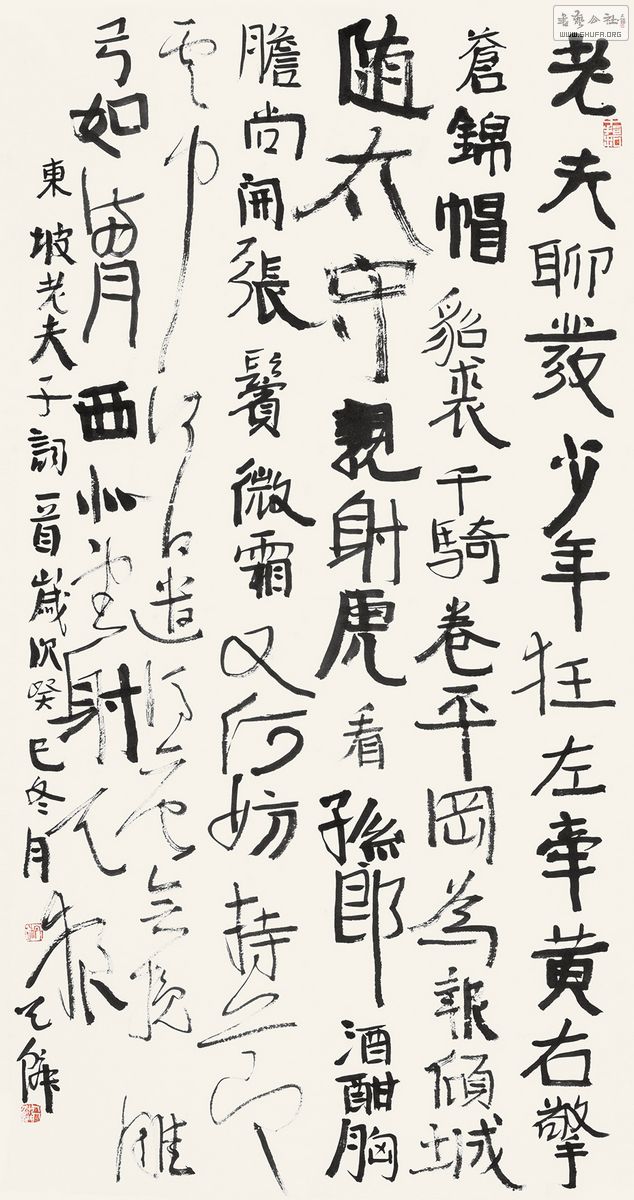 書藝公社
WWW.SHUFA.ORG
老夫聊發少年狂左牽黃右擎
蒼錦帽貂裘千騎卷平岡為報傾城
随太守親射虎看孫郎酒酣胸
膽尚開張鬢微霜又何妨持節
雲中何日遣馮唐會挽雕
弓如滿月西北望射天狼
東坡老夫子詞一首歲次癸巳冬月